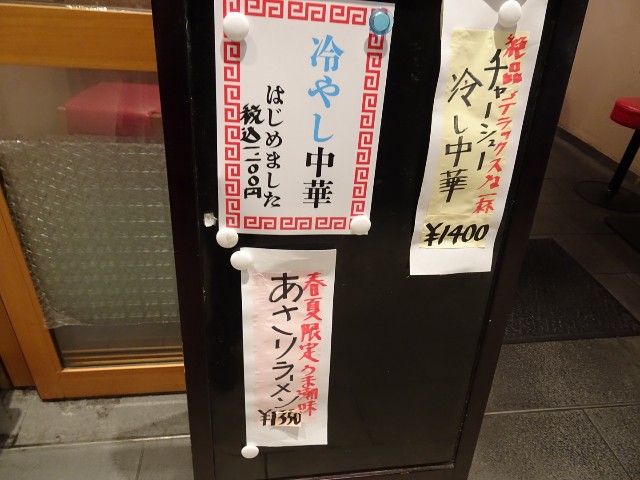 冷やし中華
はじめました
税込一二〇〇円
絶品デラックスな一杯
チャーシュー
冷し中華
¥1400
春夏限定うま潮味
あさりラーメン
¥1350